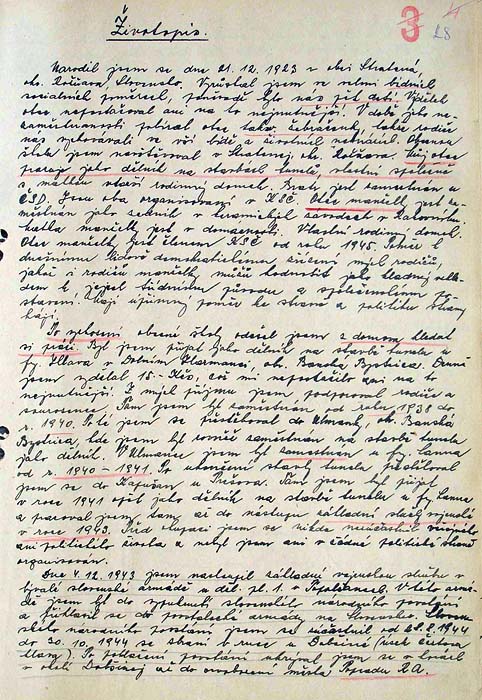 3 28
Životopis.
Narodil jsem se dne 21.12.1923 v obci Stratená,
okr. Rožňava, Slovensko. Vyrůstal jsem ve velmi bídných
sociálních poměrech, poněvadž bylo nás pět dětí. Výdělek
otec nepostačoval ani na to nejnutnější. V době jeho ne-
zaměstnanosti pobíral otec takz. žebračenky, takže rodiče
nás vychovávali ve vší bídě a životních Obecnou
školu jsem navštěvoval v Stratenej, okr. Rožňava. Můj otec
pracuje jako dělník na stavbách tunelů, vlastní společně
s matkou starší rodinný domek. Bratr jest zaměstnán u
ČSD. Jsou oba organisovaní v KSČ. Otec manželky jest za-
městnán jako v keramických závodech v
matka manželky jest v domácnosti. Vlastní rodinný domek.
Otec manželky jest členem KSČ od roku 1945. Poměr k
dnešnímu lidově demokratickému zřízení mých rodičů,
jakož i rodičů manželky může hodnotit jako kladný vzhle-
dem k jejich třídnímu původu a společenskému po-
stavení. Mají upřímný poměr ke straně a politiku strany
hájí.
Po vychození obecné školy odešel jsem z domova hledat
si práci. Byl jsem přijat jako dělník na stavbě tunelu u
fy. Hlava v Dolním Harmanci, okr. Banská Bystrica. Denně
jsem vydělal 15.- Kčs, což mi nepostačilo ani na to
nejnutnější. Z mých příjmů jsem podporoval rodiče a
sourozence. Tam jsem byl zaměstnán od roku 1938 do
r. 1940. Poté jsem se přestěhoval do Ulmanky, okr. Banská
Bystrica, kde jsem byl rovněž zaměstnán na stavbě tunelu
jako dělník. V Ulmance jsem byl zaměstnán u fy. Lanna
od r. 1940 – 1941. Po ukončení stavby tunelu přestěhoval
jsem se do Kapušan u Prešova. Tam jsem byl přijat
v roce 1941 opět jako dělník na stavbě tunelu u fy. Lanna
a pracoval jsem tam až do nástupu základní služby vojenské
v roce 1943. Před okupací jsem se nikde neúčastnil veřejného
ani politického života a nebyl jsem ani v žádné politické straně
organisován.
Dne 4.12.1943 jsem nastoupil základní vojenskou službu v
bývalé slovenské armádě u děl. pl. 1. v V této armá-
dě jsem byl do vypuknutí slovenského národního povstání
a přihlásil se do povstalecké armády na Slovensku. Sloven-
ského národního povstání jsem se zúčastnil od 28.8.1944
do 30.10.1944 se zbraní v ruce u (úsek
Hlavy). Po potlačení povstání ukrýval jsem se v horách
v okolí Dobšinej až do osvobození města Popradu RA.